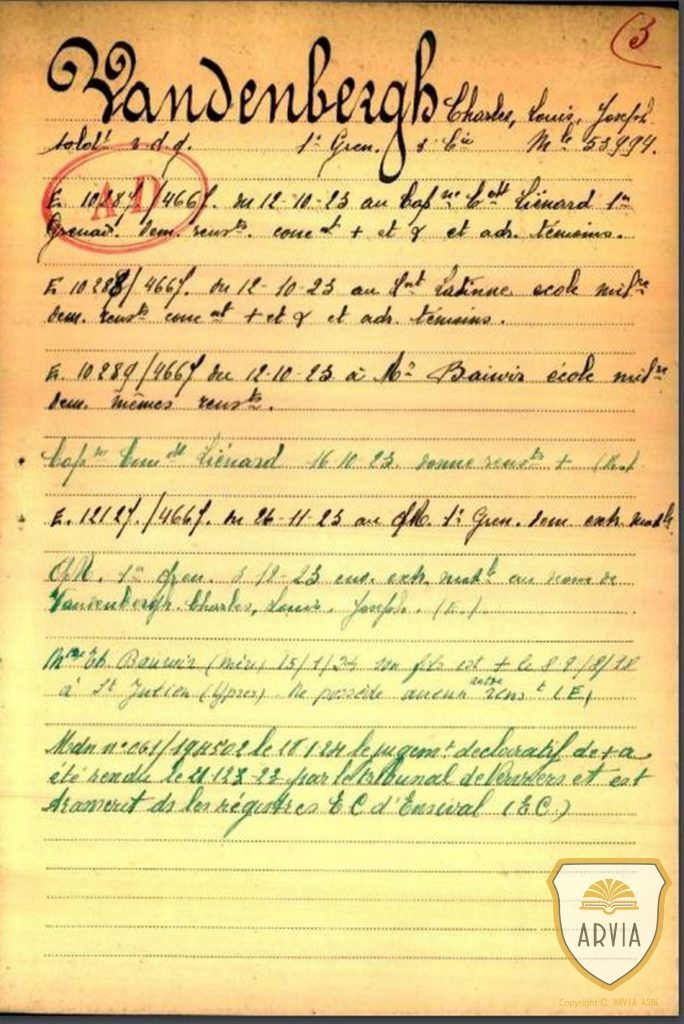 3
Vandenbergh Charles, Louis, Joseph.
soldt v.d.g. 1r Gren. 8 Cie Mle 53994.
AD
E. 10287/4667. du 12-10-23 au Capne Ctt Liénard 1er
Grenad. dem. rensts. concnt + et et adr. témoins.
E. 10288/4667. du 12-10-23 au école milre
dem. rensts concnt + et et adr. témoins.
E. 10289/4667 du 12-10-23 à Mr Baiwir école milre
dem. mêmes rensts.
Capne Comdt Liénard 16 10 23. donne rensts +
E. 12127./4667. du 26-11-23 au QM. 1r Gren. dem extr. matle.
QM. 1er Gren. 12-23 env. extr. matle au nom de
Vandenbergh. Charles, Louis. Joseph. (E.).
(mère) 15/1/24 son fils est + le 8 9/8/18
à St Julien (Ypres). Ne possède aucun autre renst (E)
le jugemt déclaratif de + a
été rendu le par le tribunal de Verviers et est
ds les régistres E C d'Ensival (EC.)
ARVIA
Copyright © ARVIA ASBL